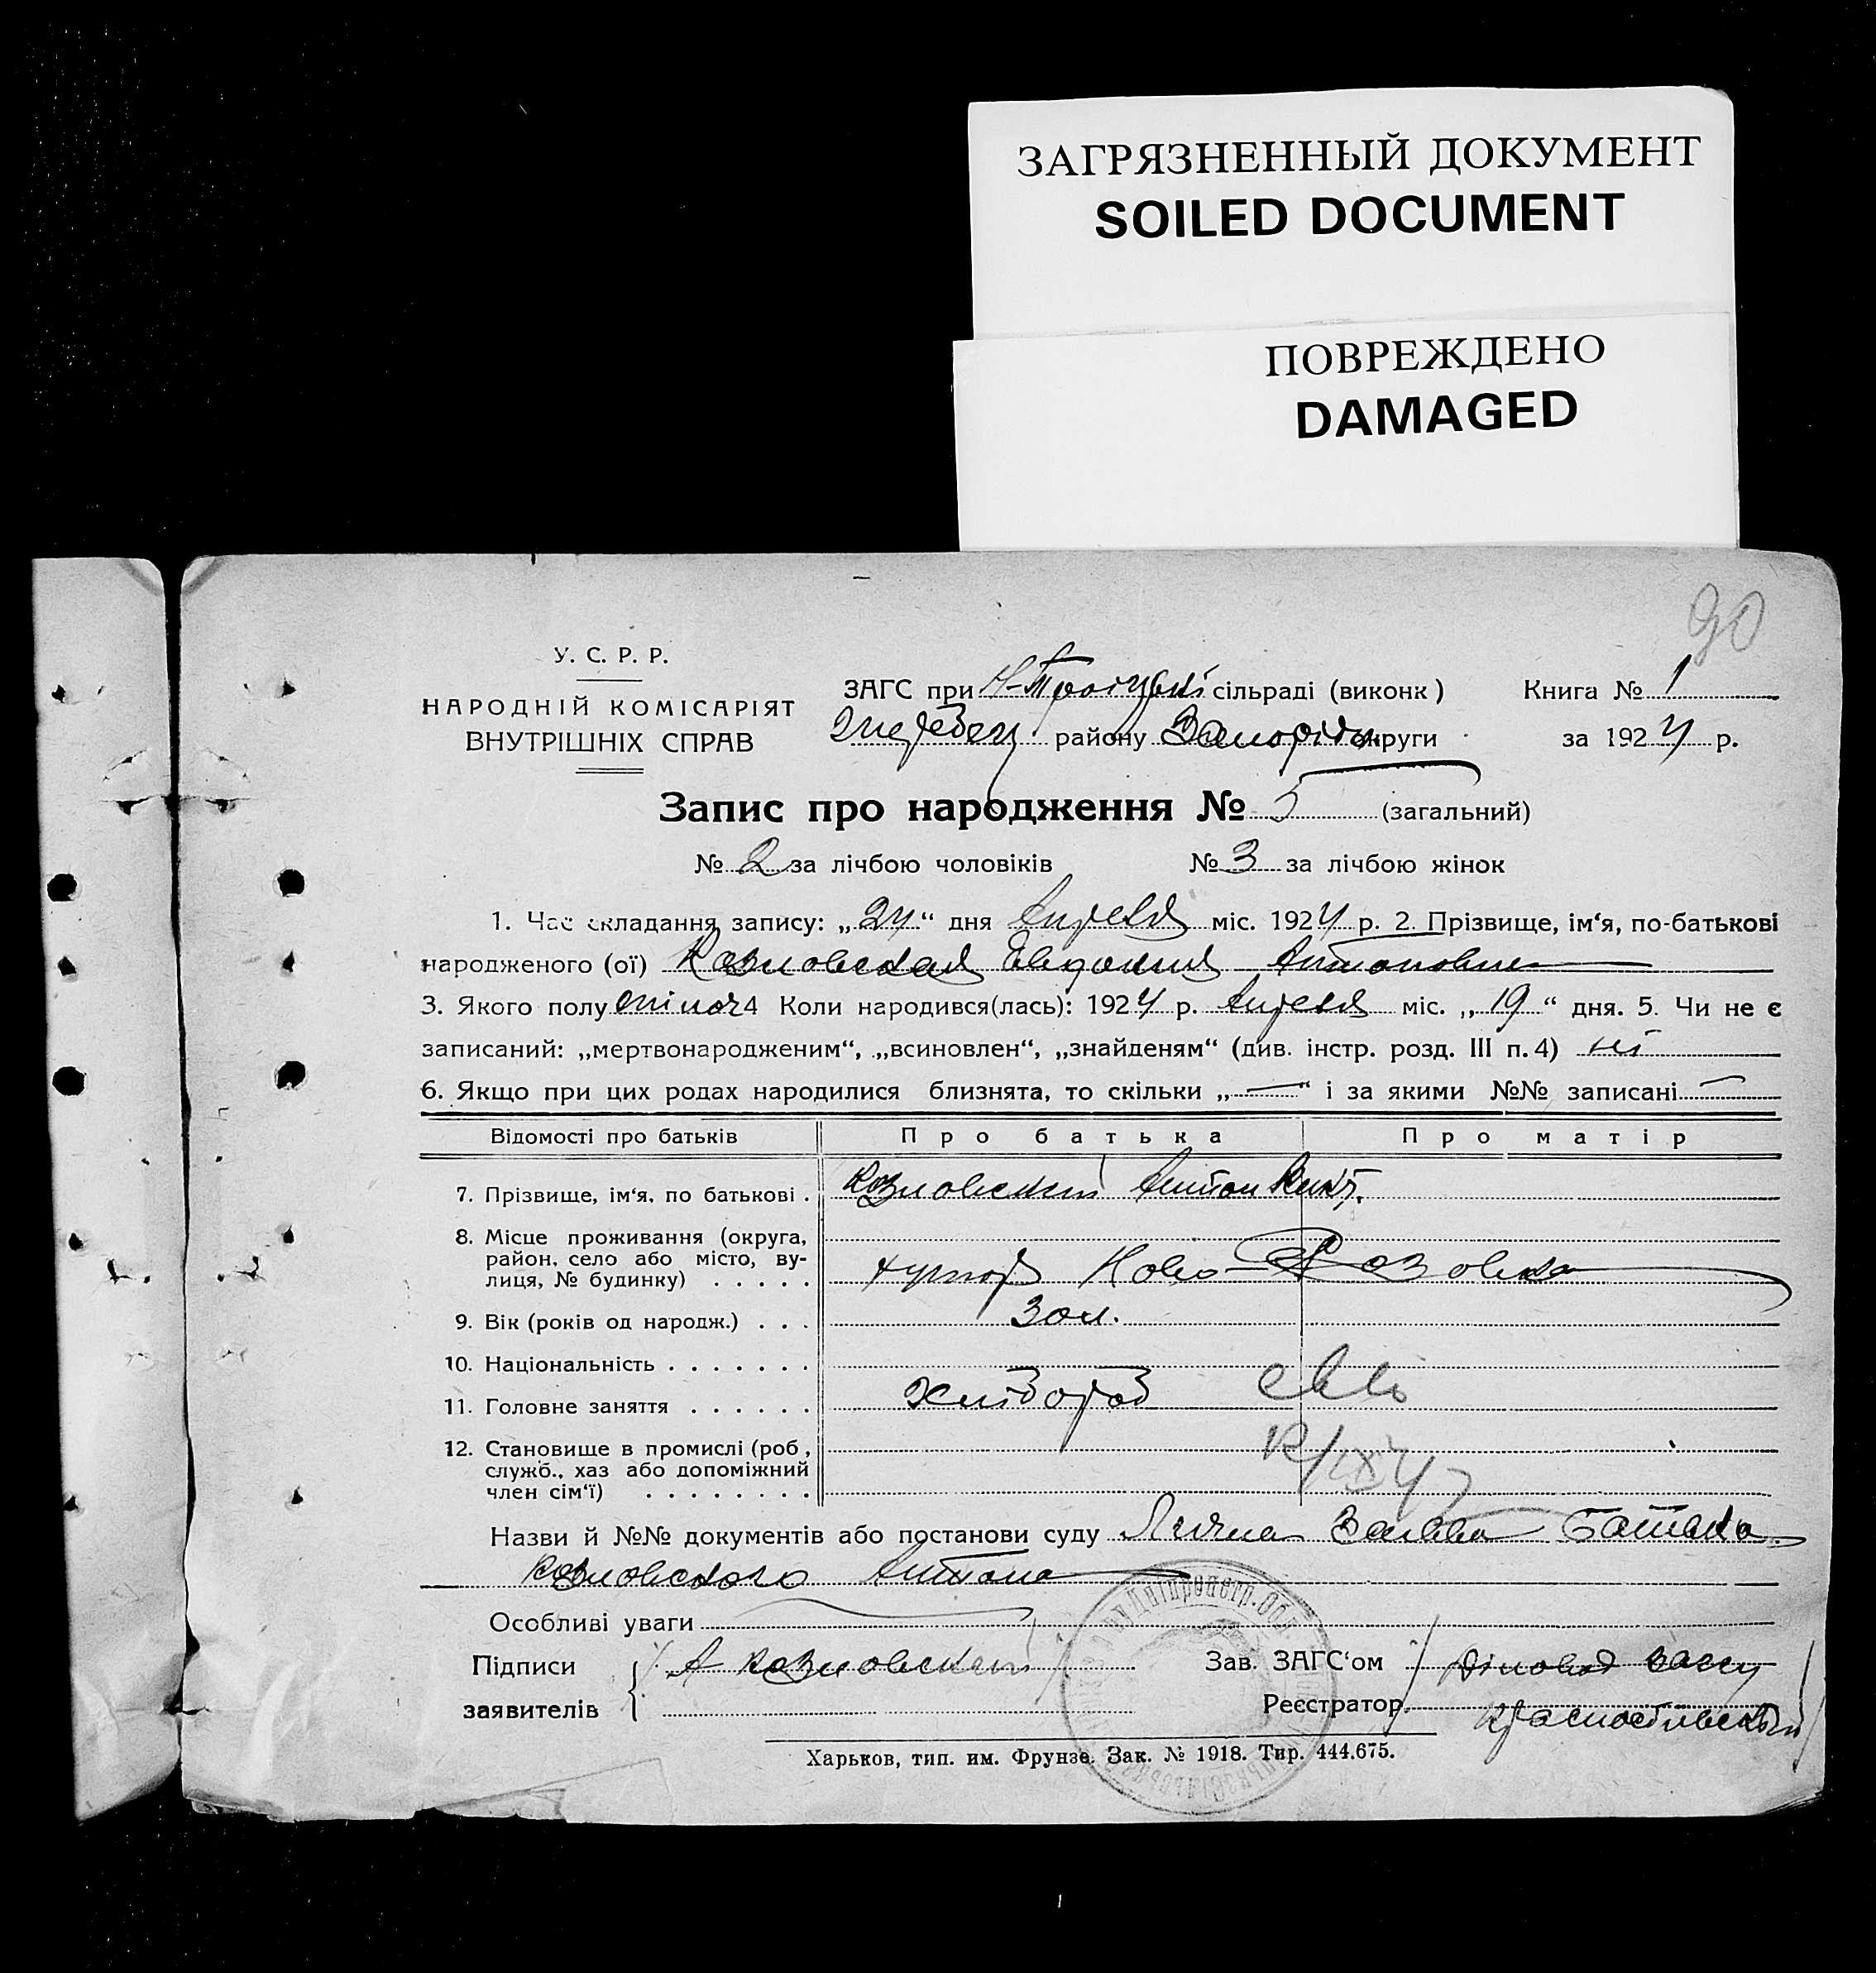 ЗАГРЯЗНЕННЫЙ ДОКУМЕНТ
SOILED DOCUMENT
ПОВРЕЖДЕНО
DAMAGED
90
У. С. Р. Р.
НАРОДНІЙ КОМІСАРІЯТ
ВНУТРІШНІХ СПРАВ
ЗАГС при сільраді (виконк) Книга № 1
району округи за 1924 р.
Запис про народження № 5 (загальний)
№ 2 за лічбою чоловіків № 3 за лічбою жінок
1. Час складання запису: „24“ дня Апреля міс. 1924 р. 2. Прізвище, ім‘я, по-батькові
народженого (ої) Козловская Евдокия Антоновна
3. Якого полу жіноч 4 Коли народився(лась): 1924 р. Апреля міс. „19“ дня. 5. Чи не є
записаний: „мертвонародженим“, „всиновлен“, „знайденям“ (див. інстр. розд. III п. 4) ні
6. Якщо при цих родах народилися близнята, то скільки „—“ і за якими №№ записані —
Відомості про батьків Про батька Про матір
7. Прізвище, ім‘я, по батькові . Козловский Антон
8. Місце проживання (округа,
район, село або місто, ву-
лиця, № будинку) . . . . . хутор Ново-
9. Вік (років од народж.) . . . 30л.
10. Національність . . . . . . .
11. Головне заняття . . . . . . Хлібороб
12. Становище в промислі (роб,
служб., хаз або допоміжний
член сім‘ї) . . . . . . . .
Назви й №№ документів або постанови суду Лична Заява Батька
Козловского Антона
Особливі уваги
Підписи А Козловский Зав. ЗАГС‘ом Діловод
заявителів Реєстратор
Харьков, тип. им. Фрунзе. Зак. № 1918. Тир. 444.675.